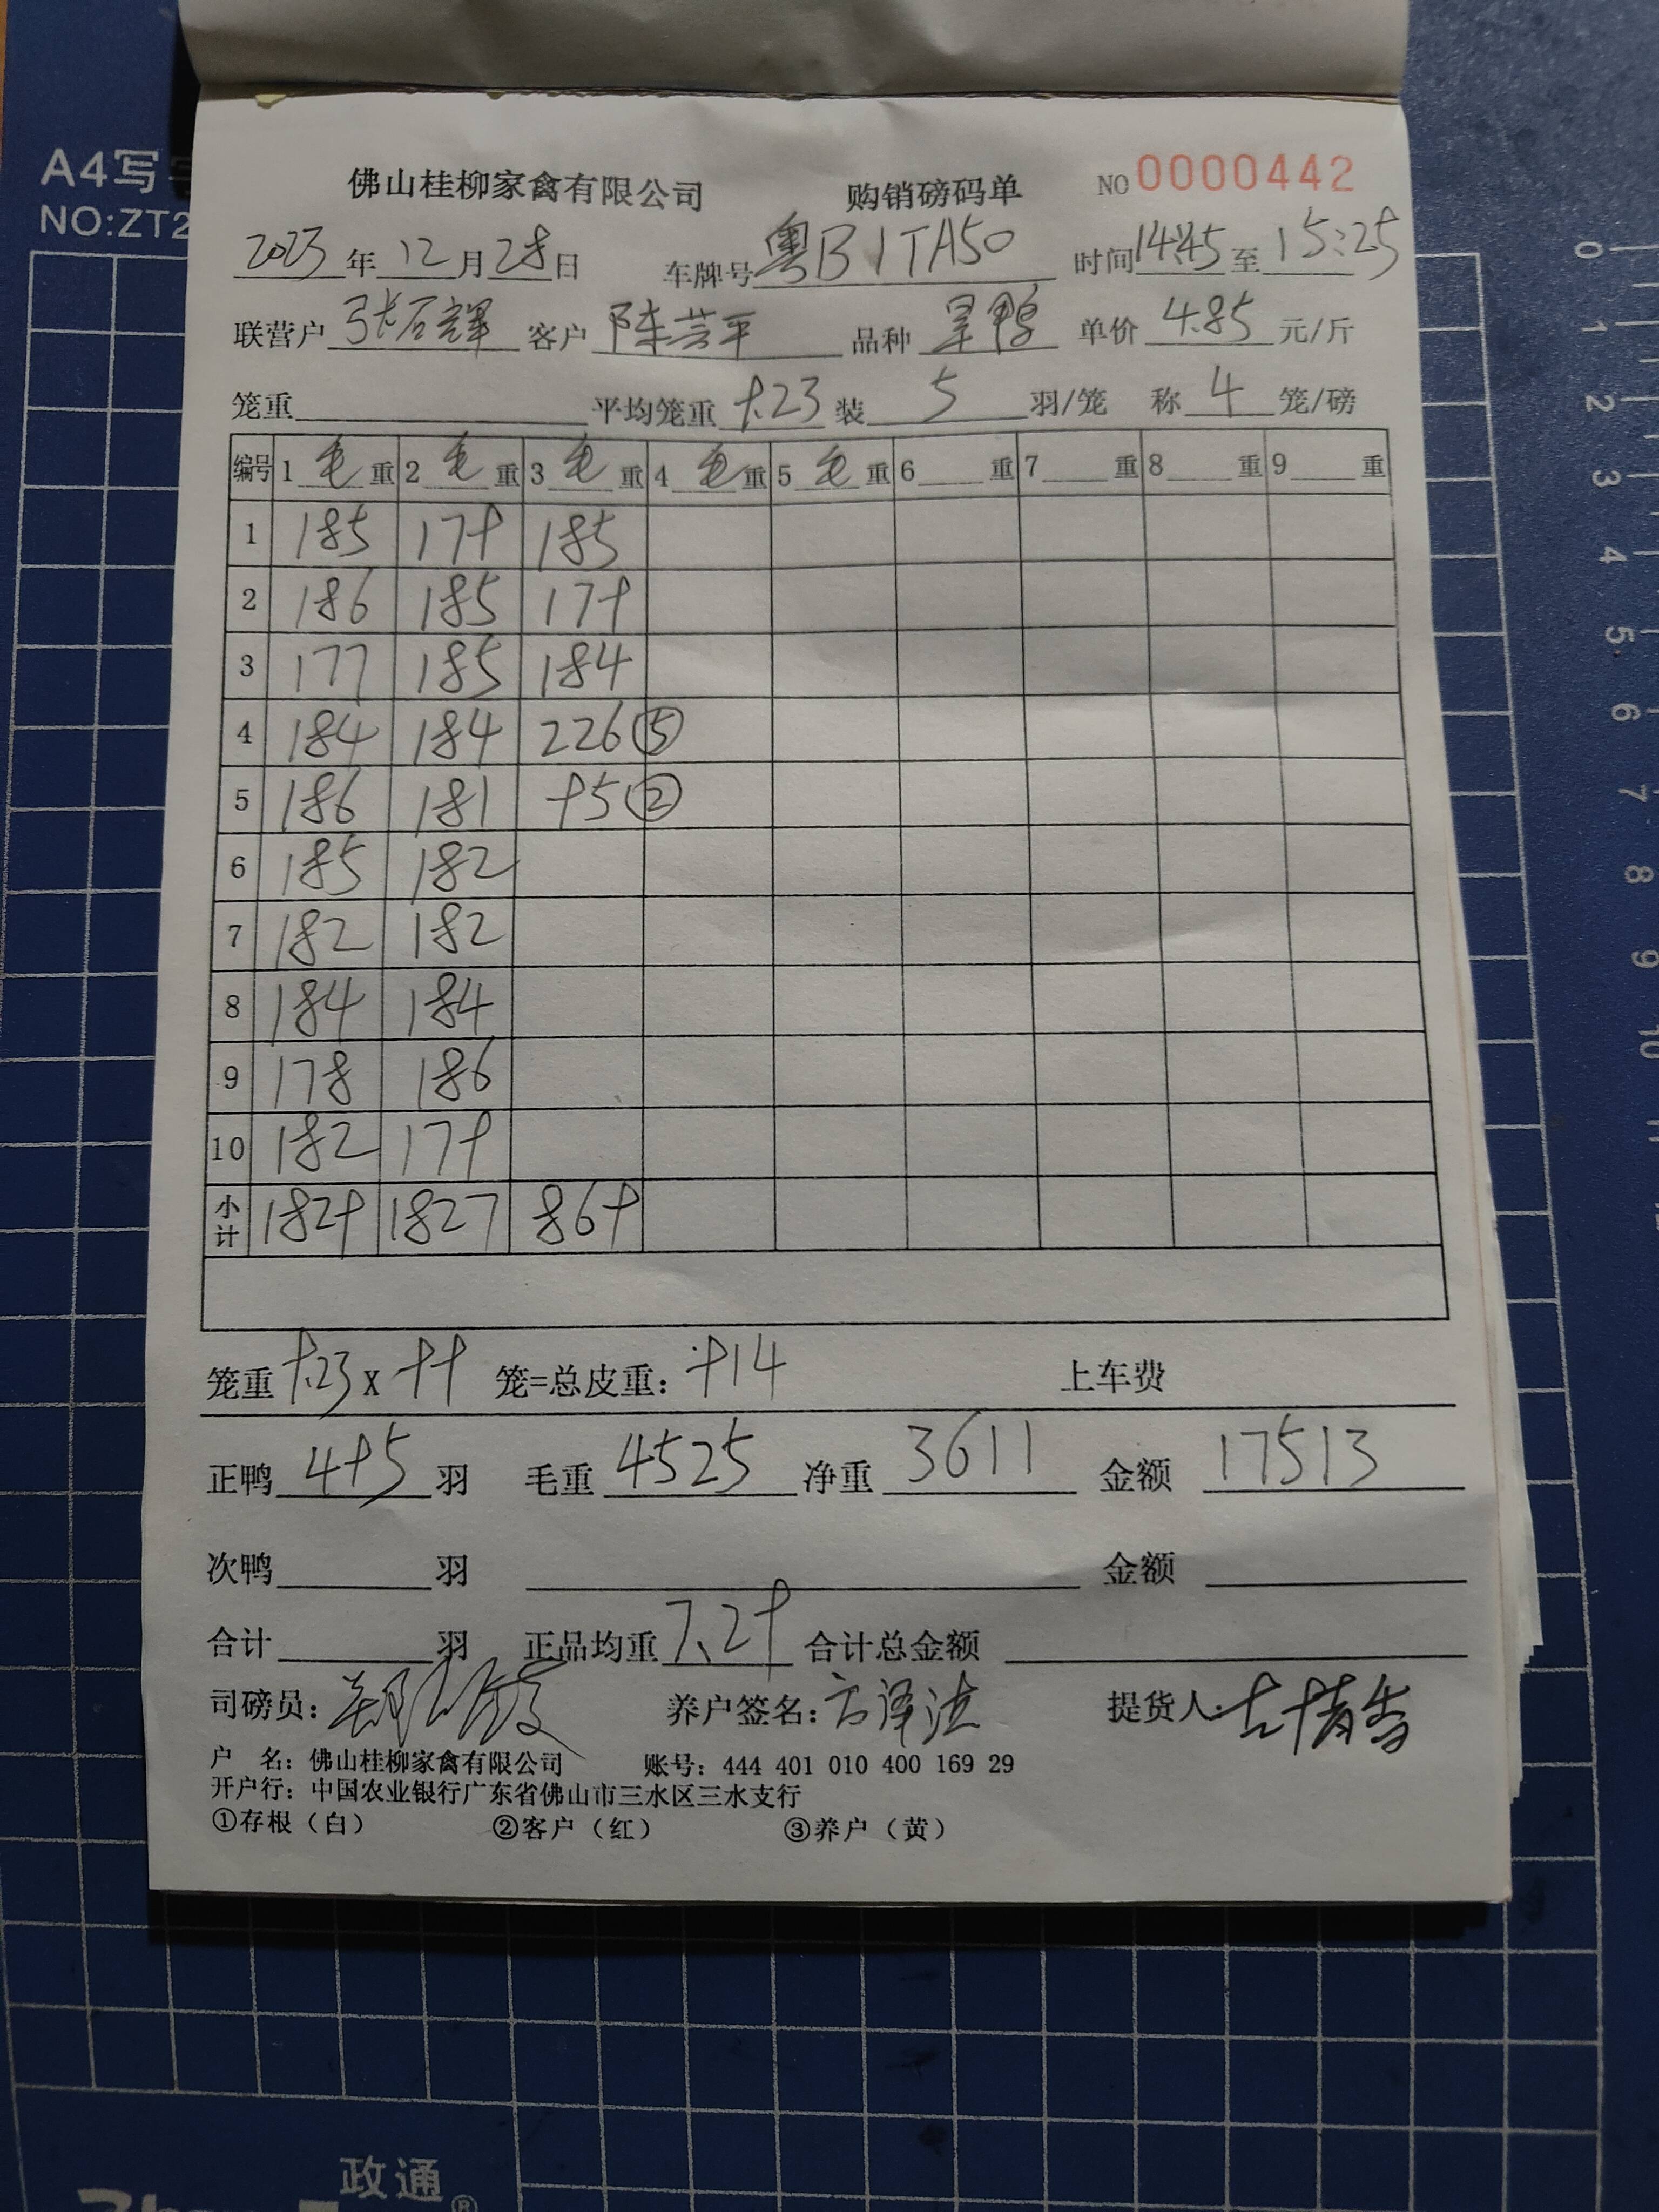 A4写
NO:ZT2
佛山桂柳家禽有限公司 购销磅码单 NO 0000442
2023年12月28日 车牌号粤B1TA50 时间14:45至15:25
联营户张石辉 客户陈芸平 品种 单价4.85元/斤
笼重 平均笼重9.23装5羽/笼 称4笼/磅
编号 1毛重 2毛重 3毛重 4毛重 5毛重 6重 7重 8重 9重
1 185 179 185
2 186 185 179
3 177 185 184
4 184 184 226⑤
5 186 181 95②
6 185 182
7 182 182
8 184 184
9 178 186
10 182 179
小计 1829 1827 869
笼重9.23x99 笼=总皮重:914 上车费
正鸭495羽 毛重4525 净重3611 金额17513
次鸭 羽 金额
合计 羽 正品均重7.29 合计总金额
司磅员: 养户签名: 提货人:
户 名:佛山桂柳家禽有限公司 账号:444 401 010 400 169 29
开户行:中国农业银行广东省佛山市三水区三水支行
①存根(白) ②客户(红) ③养户(黄)
0
1
2
3
4
5
6
7
8
9
10
政通®